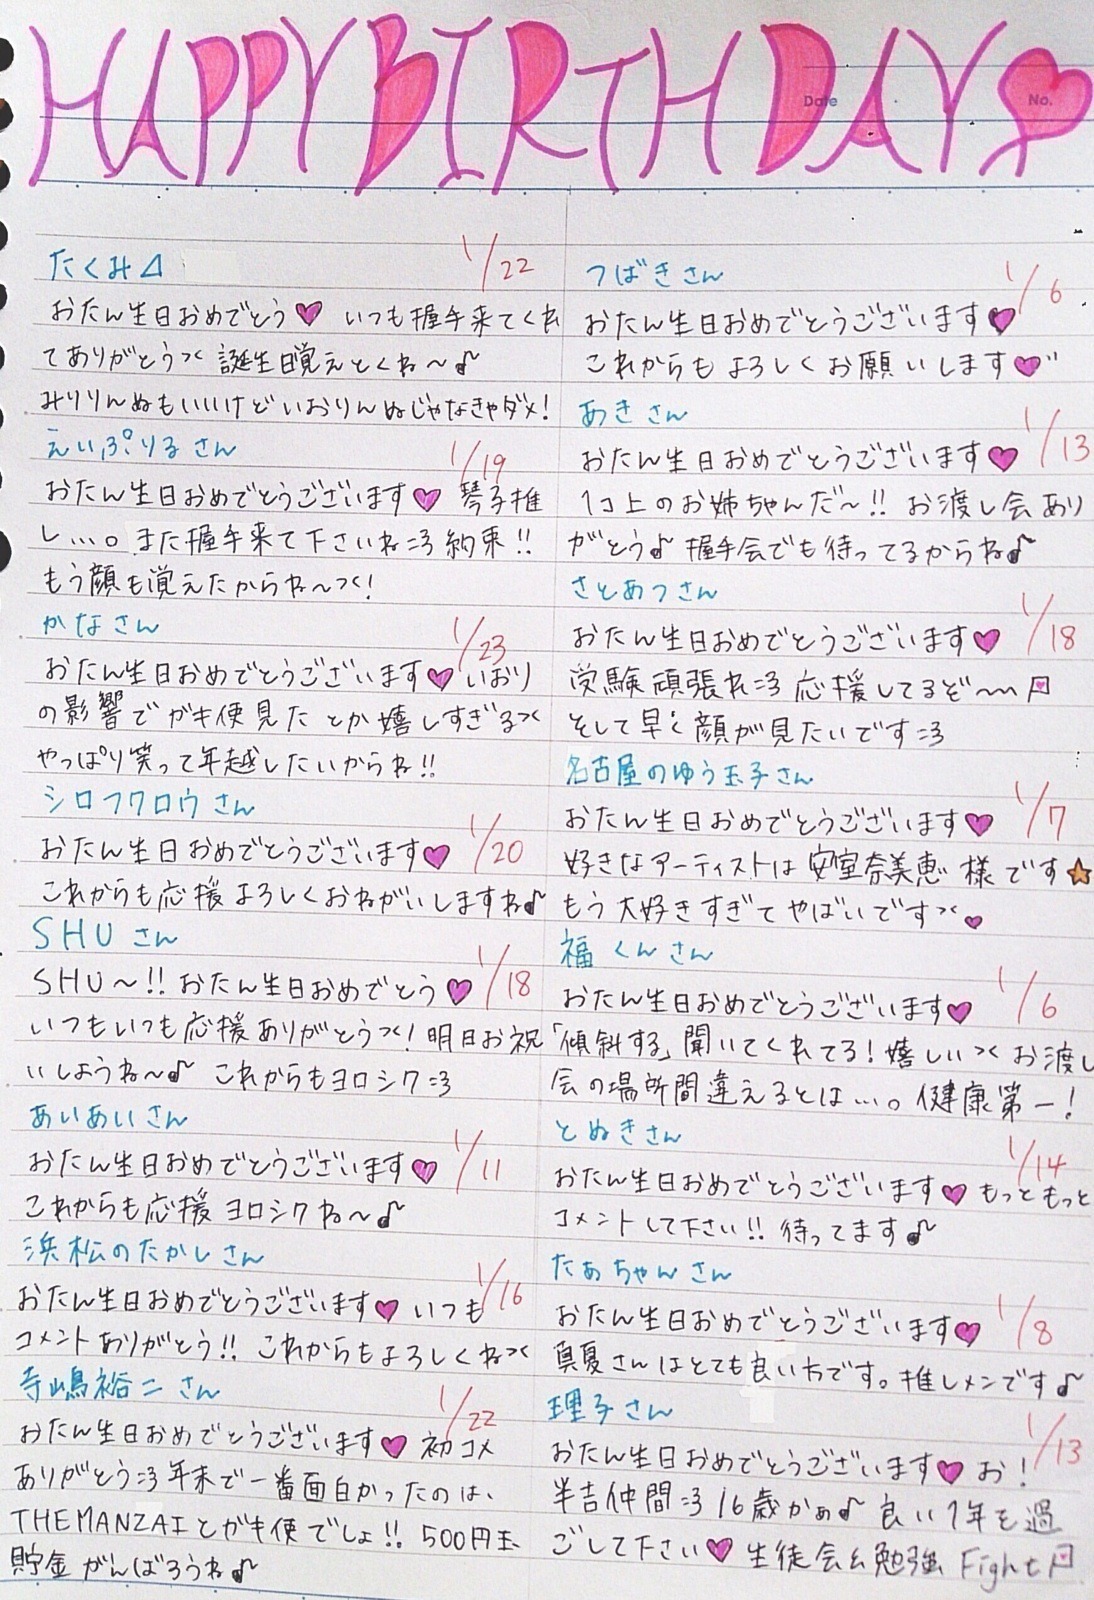 HAPPY BIRTHDAY
Date
No.
たくみ⊿
1/22
おたん生日おめでとう♥ いつも握手来てくれ
てありがとう>< 誕生日覚えとくね〜♪
みりりんぬもいいけどいおりんぬじゃなきゃダメ!
えいぷりるさん
1/19
おたん生日おめでとうございます♥ 琴子推
し…。また握手来て下さいね=3 約束!!
もう顔も覚えたからね〜><!
かなさん
1/23
おたん生日おめでとうございます♥いおり
の影響でガキ使見たとか嬉しすぎる><
やっぱり笑って年越したいからね!!
シロフクロウさん
1/20
おたん生日おめでとうございます♥
これからも応援よろしくおねがいしますね♪
SHUさん
1/18
SHU〜!! おたん生日おめでとう♥
いつもいつも応援ありがとう><! 明日お祝
いしようね〜♪ これからもヨロシク=3
あいあいさん
1/11
おたん生日おめでとうございます♥
これからも応援ヨロシクね〜♪
浜松のたかしさん
1/16
おたん生日おめでとうございます♥ いつも
コメントありがとう!! これからもよろしくね><
寺嶋裕二さん
1/22
おたん生日おめでとうございます♥ 初コメ
ありがとう=3 年末で一番面白かったのは、
THEMANZAIとガキ使でしょ!! 500円玉
貯金がんばろうね♪
つばきさん
1/6
おたん生日おめでとうございます♥
これからもよろしくお願いします♥
あきさん
1/13
おたん生日おめでとうございます♥
1コ上のお姉ちゃんだ〜!! お渡し会あり
がとう♪ 握手会でも待ってるからね♪
さとあつさん
1/18
おたん生日おめでとうございます♥
受験頑張れ=3 応援してるぞ〜〜
そして早く顔が見たいです=3
名古屋のゆう玉子さん
1/7
おたん生日おめでとうございます♥
好きなアーティストは安室奈美恵様です★
もう大好きすぎてやばいです><♥
福くんさん
1/6
おたん生日おめでとうございます♥
「傾斜する」聞いてくれてる! 嬉しい>< お渡し
会の場所間違えるとは…。健康第一!
とぬきさん
1/14
おたん生日おめでとうございます♥ もっともっと
コメントして下さい!! 待ってます♪
たぁちゃんさん
1/8
おたん生日おめでとうございます♥
真夏さんはとても良い方です。推しメンです♪
理子さん
1/13
おたん生日おめでとうございます♥ お!
半吉仲間=3 16歳かぁ♪ 良い1年を過
ごして下さい♥ 生徒会&勉強 Fight